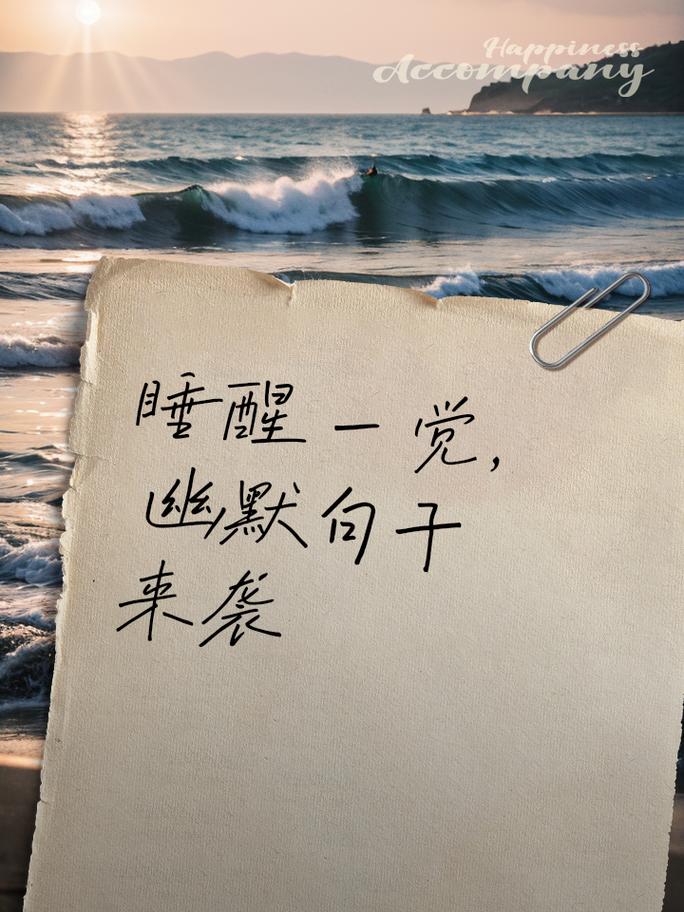 Happiness
Accompany
睡醒一觉,
幽默句子
来袭